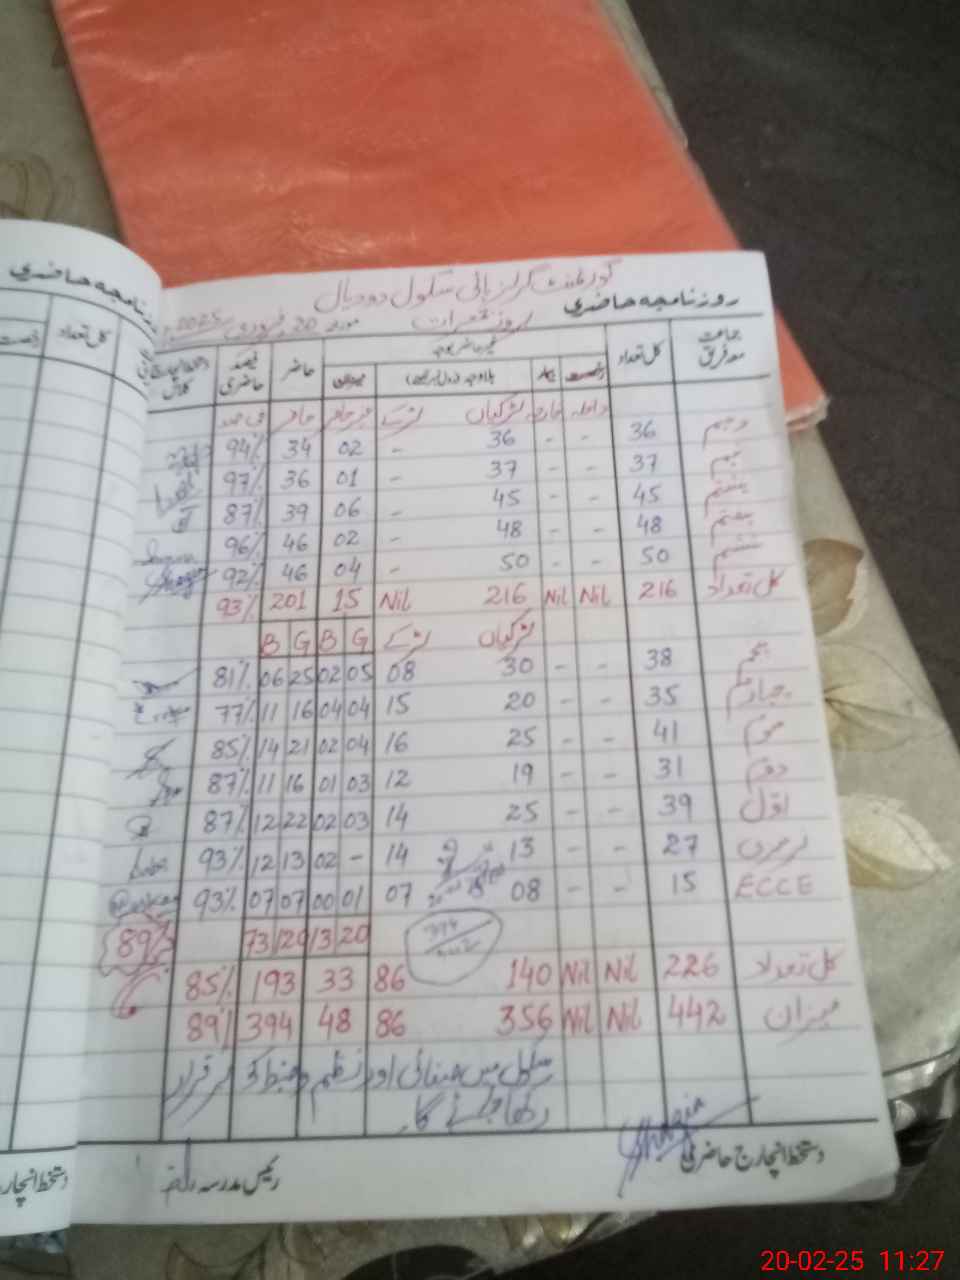 گورنمنٹ گرلز ہائی سکول دودیال
روزنامچہ حاضری
بروز جمعرات مورخہ 20 فروری 2025
جماعت معہ فریق کل تعداد غیر حاضر بوجہ حاضر فیصد حاضری
رخصت بیمار بلاوجہ میزان
داخلہ خارجہ لڑکیاں لڑکے غیر حاضر حاضر فی صد
دہم 36 - - 36 - 02 34 94%
نہم 37 - - 37 - 01 36 97%
ہشتم 45 - - 45 - 06 39 87%
ہفتم 48 - - 48 - 02 46 96%
ششم 50 - - 50 - 04 46 92%
کل تعداد 216 Nil Nil 216 Nil 15 201 93%
لڑکیاں لڑکے G B G B
پنجم 38 - - 30 08 05 02 25 06 81%
چہارم 35 - - 20 15 04 04 16 11 77%
سوم 41 - - 25 16 04 02 21 14 85%
دوم 31 - - 19 12 03 01 16 11 87%
اول 39 - - 25 14 03 02 22 12 87%
نرسری 27 - - 13 14 - 02 13 12 93%
ECCE 15 - - 08 07 01 00 07 07 93%
20 13 120 73 89%
کل تعداد 226 Nil Nil 140 86 33 193 85%
میزان 442 Nil Nil 356 86 48 394 89%
394
442
سکول میں صفائی اور نظم و ضبط کو برقرار
رکھا جائے گا۔
دستخط انچارج حاضری
رئیس مدرسہ
روزنامچہ حاضری
کل تعداد
دستخط انچارج
20-02-25 11:27